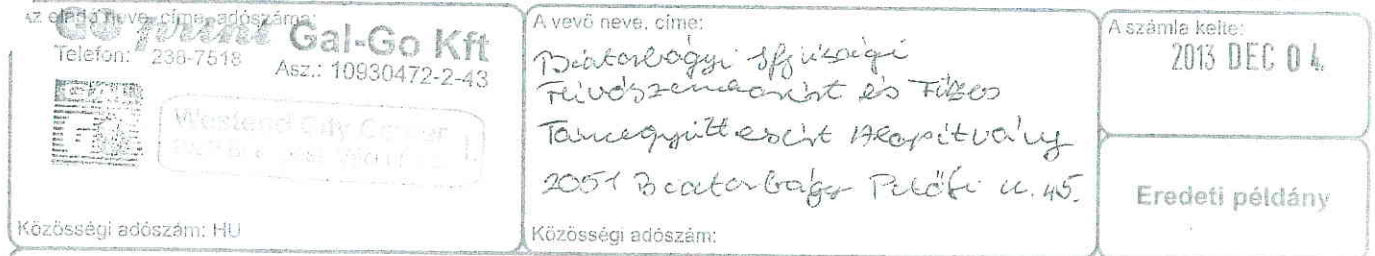 Az eladó neve, címe, adószáma:
GO print Gal-Go Kft
Telefon: 236-7518
Asz.: 10930472-2-43
Westend City Center
Közösségi adószám: HU
A vevő neve, címe:
Biatorbágyi Ifjúsági
Fúvószenekarért és Füzes
Táncegyüttesért Alapítvány
2051 Biatorbágy Petőfi u. 45.
Közösségi adószám:
A számla kelte:
2013 DEC 04.
Eredeti példány